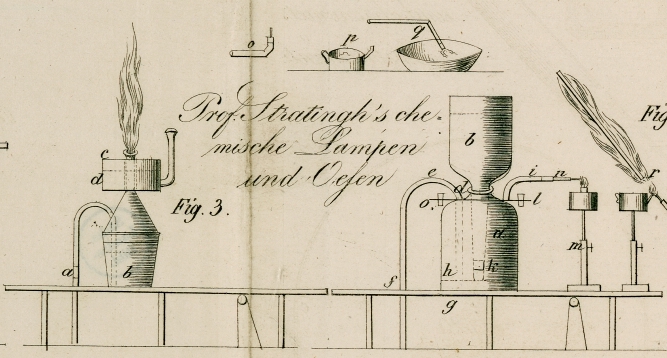 o
p
q
Prof. Stratingh's che-
mische Lampen
und Oefen
Fig. 3.
Fig
c
d
a
b
b
e
d
i
n
r
o.
l
a
m
h
k
f
g